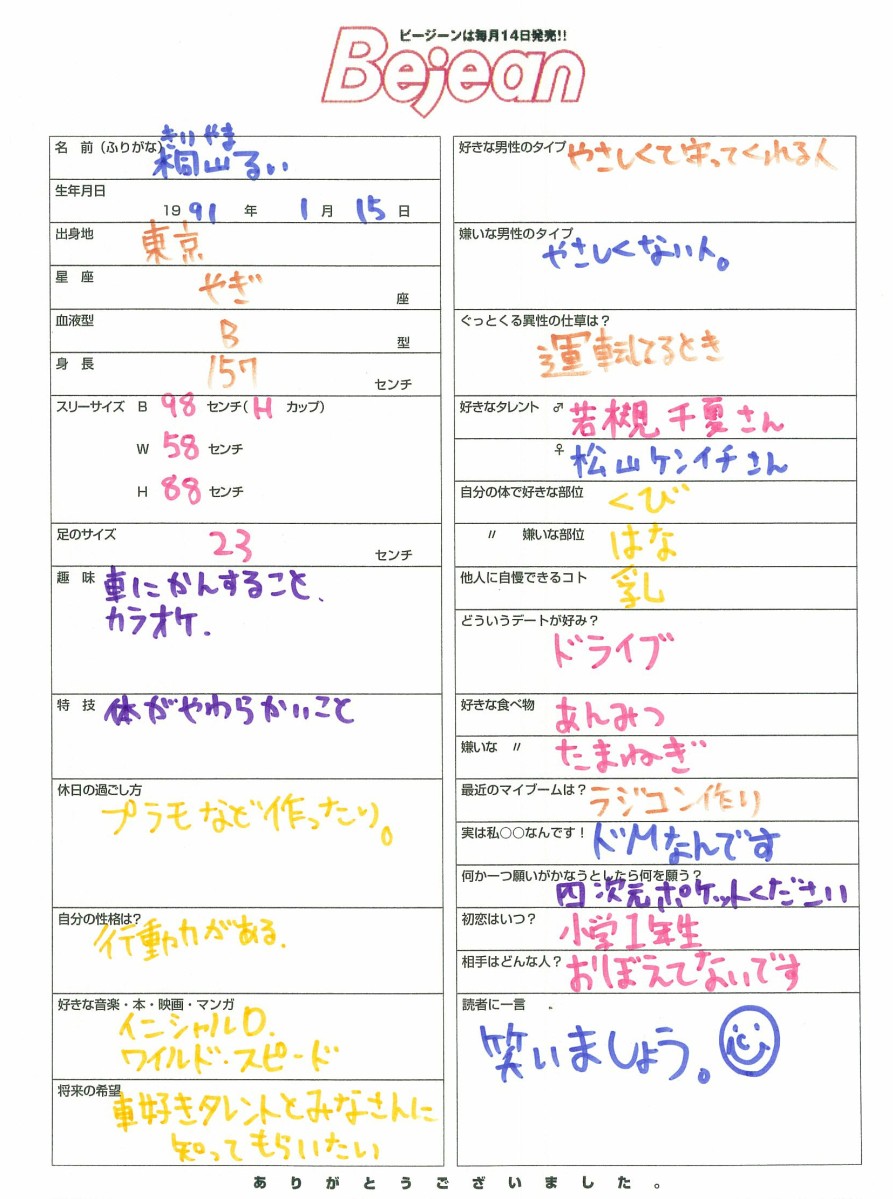 ビージーンは毎月14日発売!!
Bejean
名 前(ふりがな) きりやま
桐山るい
生年月日
19 91 年 1 月 15 日
出身地 東京
星 座 やぎ 座
血液型 B 型
身 長 157 センチ
スリーサイズ B 98 センチ( H カップ)
W 58 センチ
H 88 センチ
足のサイズ 23 センチ
趣 味 車にかんすること、
カラオケ.
特 技 体がやわらかいこと
休日の過ごし方
プラモなど作ったり。
自分の性格は?
行動力がある.
好きな音楽・本・映画・マンガ
イニシャルD.
ワイルド・スピード
将来の希望
車好きタレントとみなさんに
知ってもらいたい
好きな男性のタイプ やさしくて守ってくれる人
嫌いな男性のタイプ
やさしくない人。
ぐっとくる異性の仕草は?
運転してるとき
好きなタレント ♂ 若槻千夏さん
♀ 松山ケンイチさん
自分の体で好きな部位 くび
〃 嫌いな部位 はな
他人に自慢できるコト 乳し
どういうデートが好み?
ドライブ
好きな食べ物 あんみつ
嫌いな 〃 たまねぎ
最近のマイブームは? ラジコン作り
実は私○○なんです! ドMなんです
何か一つ願いがかなうとしたら何を願う?
四次元ポケットください
初恋はいつ? 小学1年生
相手はどんな人? おぼえてないです
読者に一言
笑いましょう。
ありがとうございました。